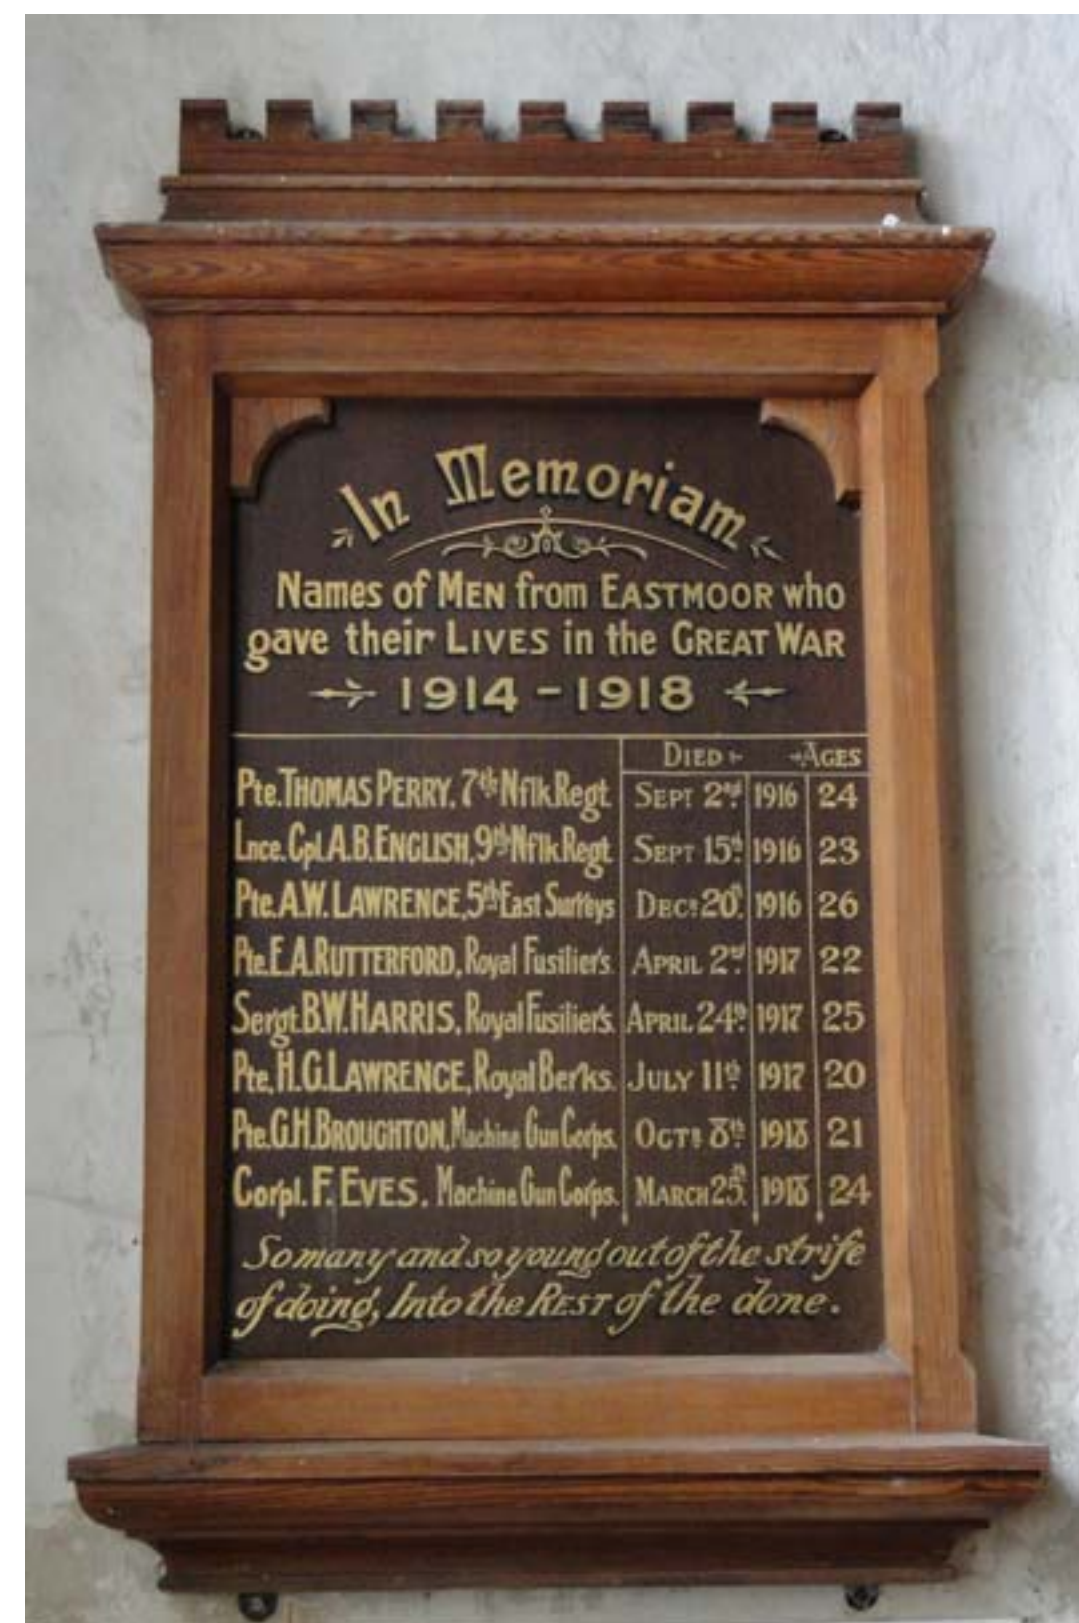 In Memoriam
Names of MEN from EASTMOOR who
gave their LIVES in the GREAT WAR
1914 - 1918
DIED AGES
Pte. THOMAS PERRY, 7th Nflk Regt. SEPT 2nd. 1916 24
Lnce. Cpl. A.B. ENGLISH, 9th Nflk Regt. SEPT 15th. 1916 23
Pte. A.W. LAWRENCE, 5th East Surreys DECR. 20th. 1916 26
Pte. E.A. RUTTERFORD, Royal Fusilier's. APRIL 2nd. 1917 22
Sergt. B.W. HARRIS, Royal Fusilier's. APRIL 24th. 1917 25
Pte, H.G. LAWRENCE, Royal Berks. JULY 11th. 1917 20
Pte. G.H. BROUGHTON, Machine Gun Corps. OCTR. 8th. 1918 21
Corpl. F. EVES, Machine Gun Corps. MARCH 25th. 1918 24
So many and so young out of the strife
of doing, Into the REST of the done.